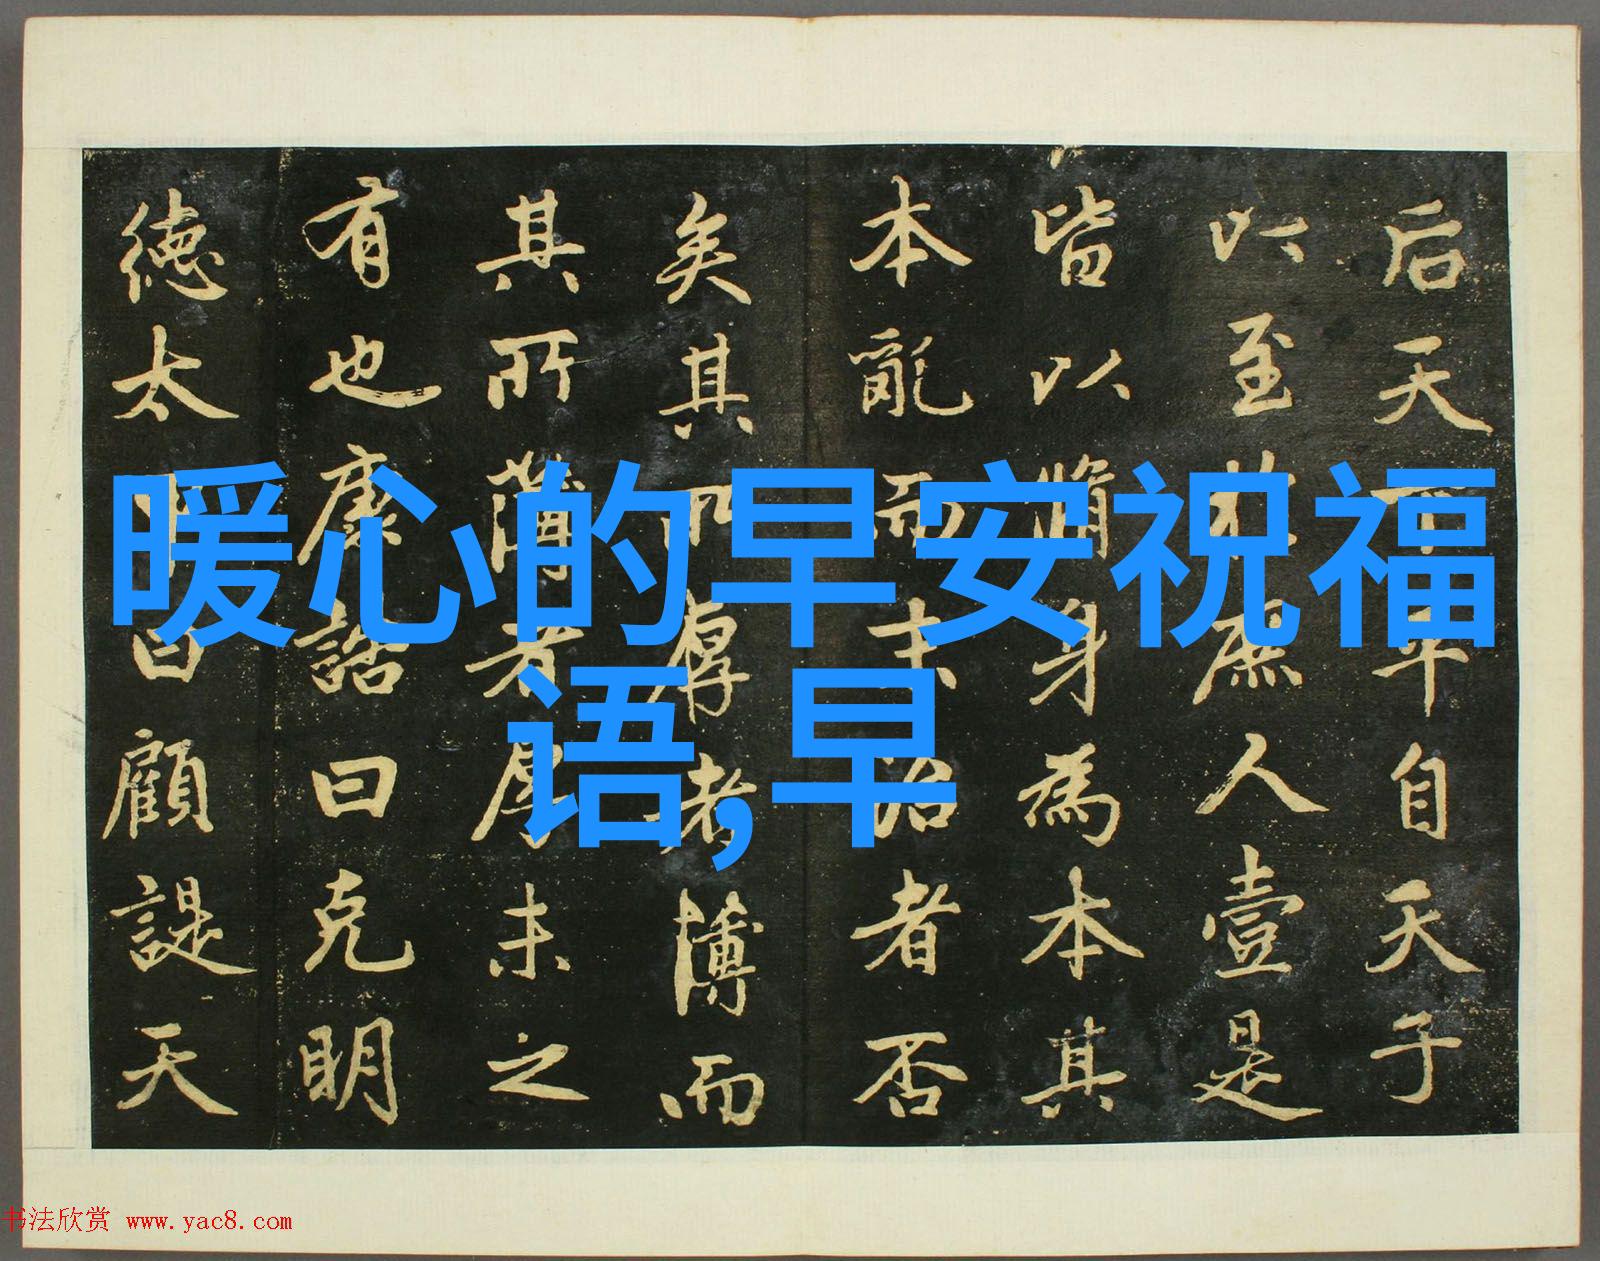 后天下平自天子
以至於庶人壹是
皆以脩身為本其
本亂而末治者否
矣其所厚者薄而
其所薄者厚未之
有也康誥曰克明
德太甲曰顧諟天
暖心的早安祝福
语,早
书法欣赏 www.yac8.com